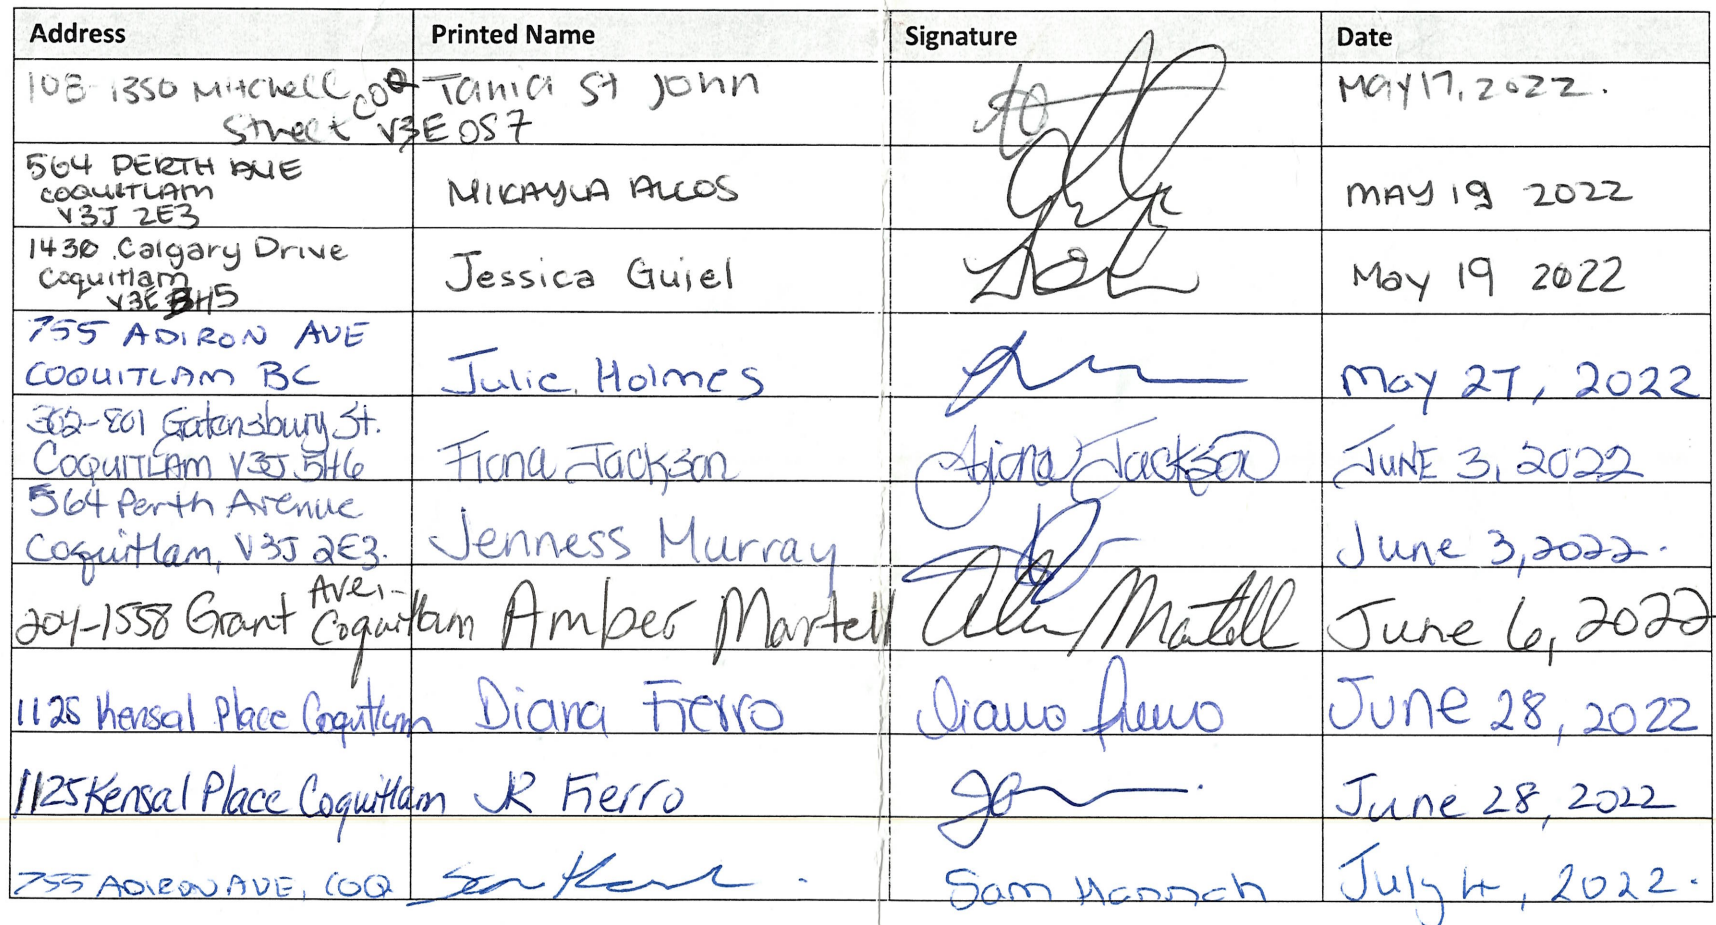 Address Printed Name Signature Date
108-1350 Mitchell COQ Tania St John May 17, 2022.
Street V3E 0S7
564 PERTH AVE
COQUITLAM MIKAYLA ALCOS MAY 19 2022
V3J 2E3
1430 Calgary Drive
Coquitlam Jessica Guiel May 19 2022
V3E 3H5
755 ADIRON AVE
COQUITLAM BC Julie Holmes May 27, 2022
302-801 Gatensbury St.
COQUITLAM V3J 5H6 Fiona Jackson Fiona Jackson JUNE 3, 2022
564 Perth Avenue
Coquitlam, V3J 2E3. Jenness Murray June 3, 2022.
Ave,-
204-1558 Grant Coquitlam Amber Martell Martell June 6, 2022
1125 Kensal Place Coquitlam Diana Fierro Diana Fierro June 28, 2022
1125 Kensal Place Coquitlam JR Fierro June 28, 2022
755 ADIRON AVE, COQ Sam Hannah July 4, 2022.